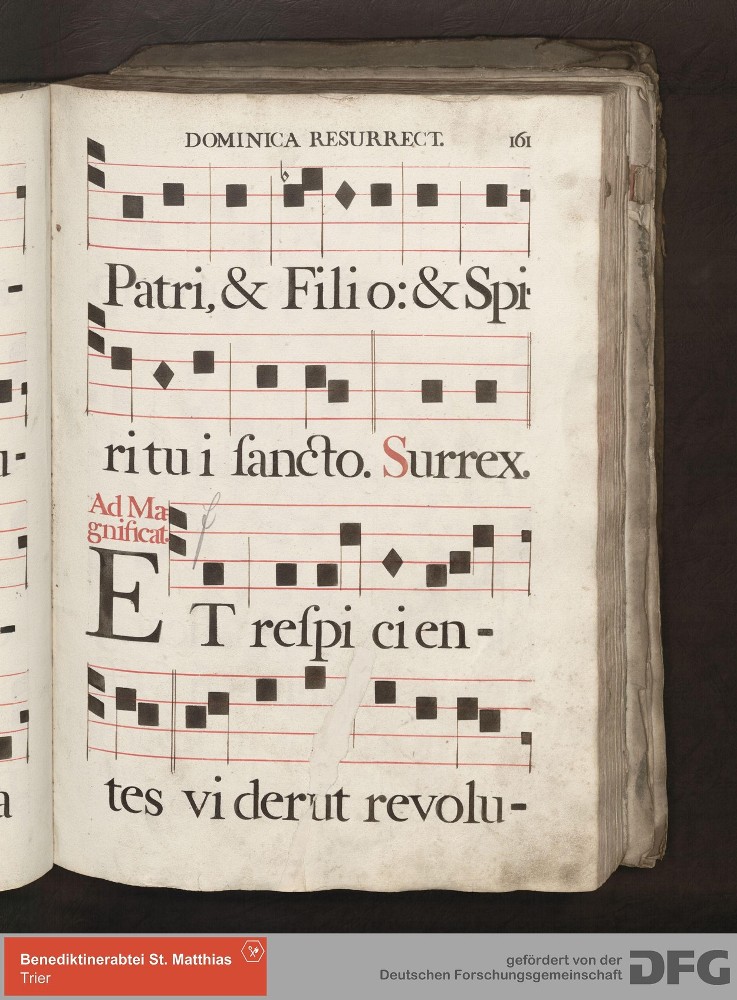 DOMINICA RESURRECT. 161
Patri, & Filio: & Spi-
ritui ſancto. Surrex.
Ad Ma-
gnificat.
ET reſpicien-
tes viderut revolu-
Benediktinerabtei St. Matthias
Trier
gefördert von der
Deutschen Forschungsgemeinschaft
DFG